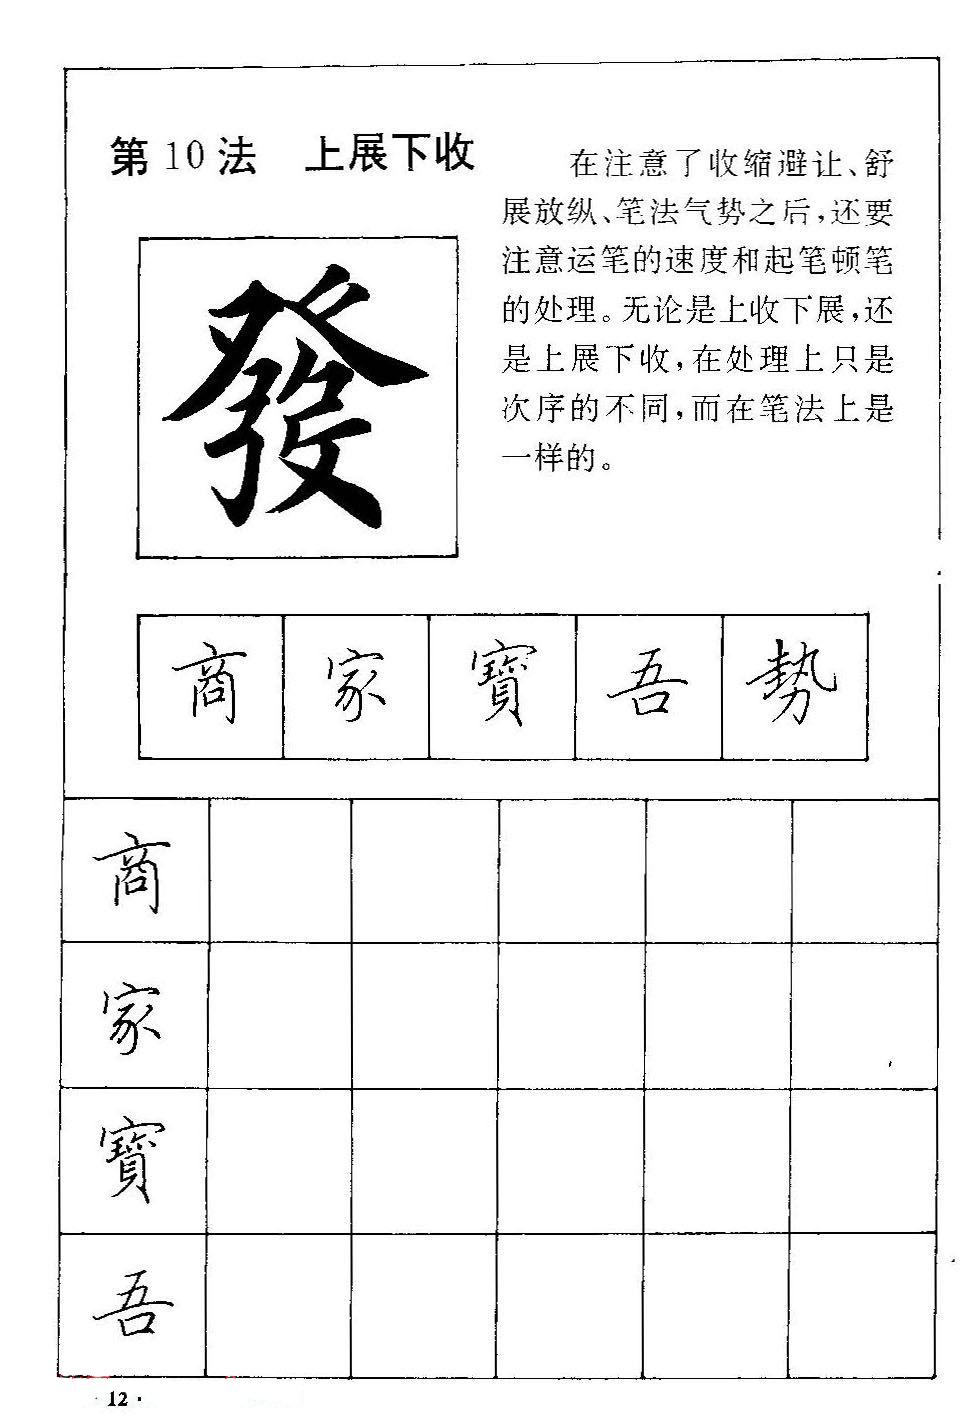 第10法 上展下收
發
在注意了收缩避让、舒
展放纵、笔法气势之后,还要
注意运笔的速度和起笔顿笔
的处理。无论是上收下展,还
是上展下收,在处理上只是
次序的不同,而在笔法上是
一样的。
商 家 寶 吾 勢
商
家
寶
吾
·12·